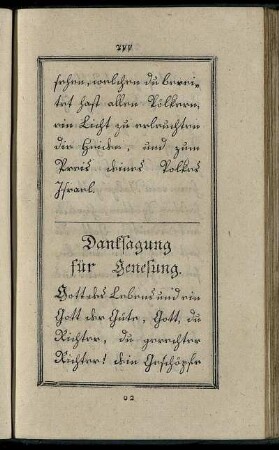 sehen, welchen du berei-
tet hast allen Völkern,
ein Licht zu erleuchten
die Heiden, und zum
Preis deines Volkes
Israel.
Danksagung
für Genesung.
Gott des Lebens und ein
Gott der Güte, Gott, du
Richter, du gerechter
Richter! dein Geschöpfe